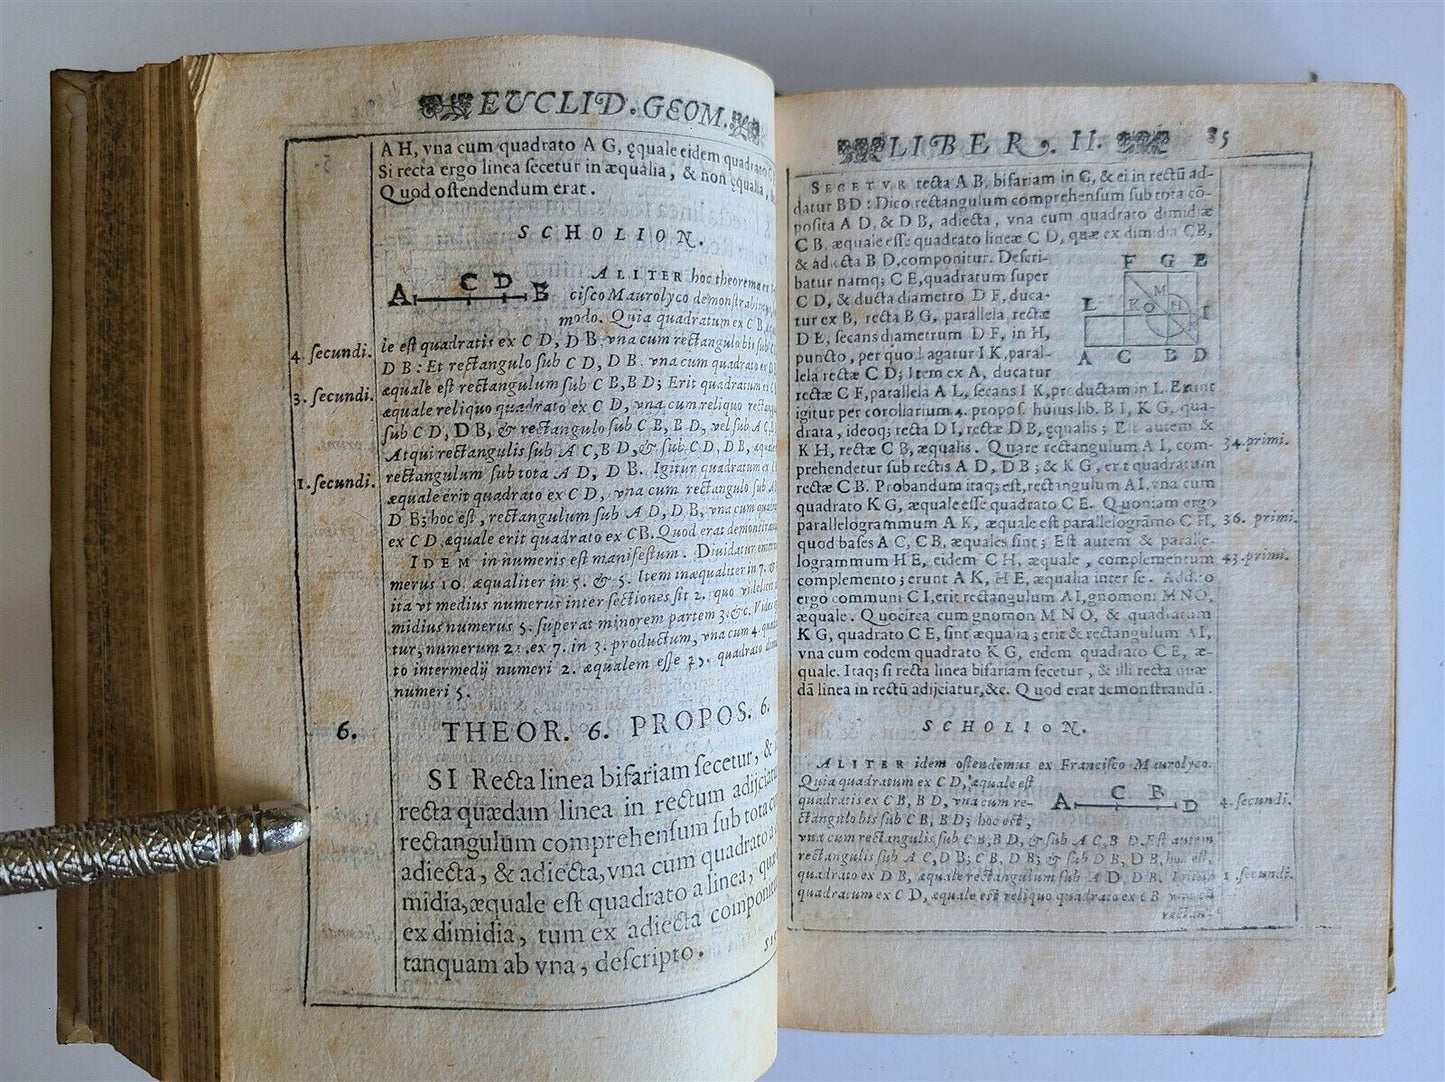 EUCLID. GEOM.
A H, vna cum quadrato A G, ęquale eidem quadrato
Si recta ergo linea secetur in æqualia, & non ęqualia,
Quod ostendendum erat.
SCHOLION.
A C D B
ALITER hoc theorema
cisco Maurolyco demonstrabi
modo. Quia quadratum ex C B,
4. secundi.
le est quadratis ex C D, D B vna cum rectangulo bis sub
D B: Et rectangulo sub C D, D B vna cum quadrato ex
3. secundi.
æquale est rectangulum sub C B, B D; Erit quadratum ex
æquale reliquo quadrato ex C D, vna cum reliquo
sub C D, D B, & rectangulo sub C B, B D, vel sub A C,
Atqui rectangulis sub A C, B D, & sub C D, D B,
1. secundi.
rectangulum sub tota A D, D B. Igitur quadratum ex
æquale erit quadrato ex C D, vna cum rectangulo sub
D B; hoc est, rectangulum sub A D, D B, vna cum
ex C D æquale erit quadrato ex C B. Quod erat
IDEM in numeris est manifestum. Diuidatur
merus 10. æqualiter in 5. & 5. Item inæqualiter in 7.
ita vt medius numerus inter sectiones sit 2. quo
midius numerus 5. superat minorem partem 3. &c.
tur, numerum 21. ex 7. in 3. productum, vna cum 4.
to intermedij numeri 2. æqualem esse 25. quadrato
numeri 5.
6. THEOR. 6. PROPOS. 6.
SI Recta linea bifariam secetur, &
recta quædam linea in rectum
rectangulum comprehensum sub tota
adiecta, & adiecta, vna cum quadrato a
midia, æquale est quadrato a linea,
ex dimidia, tum ex adiecta
tanquam ab vna, descripto.
LIBER. II. 85
SECETVR recta A B, bifariam in C, & ei in rectũ ad-
datur B D: Dico rectangulum comprehensum sub tota cõ-
posita A D, & D B, adiecta, vna cum quadrato dimidiæ
C B, æquale esse quadrato lineæ C D, quæ ex dimidia C B,
& adiecta B D, componitur. Descri-
batur namq; C E, quadratum super
C D, & ducta diametro D F, duca-
tur ex B, recta B G, parallela rectæ
D E, secans diametrum D F, in H,
puncto, per quod agatur I K, paral-
lela rectæ C D; Item ex A, ducatur
F G E
M
L K O H I
A C B D
rectæ C F, parallela A L, secans I K, productam in L. Erunt
igitur per coroliarium 4. propos. huius lib. B I, K G, qua-
drata, ideoq; recta D I, rectæ D B, ęqualis; Est autem &
K H, rectæ C B, æqualis. Quare rectangulum A I, com- 34. primi.
prehendetur sub rectis A D, D B; & K G, erit quadratum
rectæ C B. Probandum itaq; est, rectangulum A I, vna cum
quadrato K G, æquale esse quadrato C E. Quoniam ergo
parallelogrammum A K, æquale est parallelogrãmo C H, 36. primi.
quod bases A C, C B, æquales sint; Est autem & paralle-
logrammum H E, eidem C H, æquale, complementum 43. primi.
complemento; erunt A K, H E, æqualia inter se. Addito
ergo communi C I, erit rectangulum A I, gnomoni M N O,
æquale. Quocirca cum gnomon M N O, & quadratum
K G, quadrato C E, sint æqualia; erit & rectangulum A I,
vna cum eodem quadrato K G, eidem quadrato C E, æ-
quale. Itaq; si recta linea bifariam secetur, & illi recta quæ
dã linea in rectũ adijciatur, &c. Quod erat demonstrandũ.
SCHOLION.
ALITER idem ostendemus ex Francisco Maurolyco.
Quia quadratum ex C D, æquale est
quadratis ex C B, B D, vna cum re-
ctangulo bis sub C B, B D; hoc est,
A C B D
4. secundi.
vna cum rectangulis sub C B, B D, & sub A C, B D. Est autem
rectangulis sub A C, D B; C B, D B; & sub D B, D B, hoc est,
quadrato ex D B, æquale rectangulum sub A D, D B. Igitur 1. secundi.
quadratum ex C D, æquale est reliquo quadrato ex C B vna cũ
rectan-